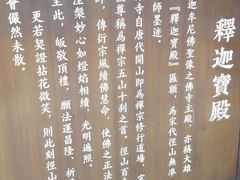 釋迦寶殿
迦牟尼佛聖像之佛寺主殿，亦稱大雄
『釋迦寶殿』匾額，為宋代徑山無準
師墨迹。
寺自唐代開山即為禪宗修行道場，宋
尊稱為禪宗五山十剎之首。徑山百
傳衍宗風續佛慧命，使佛之正法
涅槃妙心如燈焰相續，光明遍照。
至此，皈敬頂禮，願法運昌隆，祈
更若契證拈花微笑，則此刻徑山
會儼然未散。